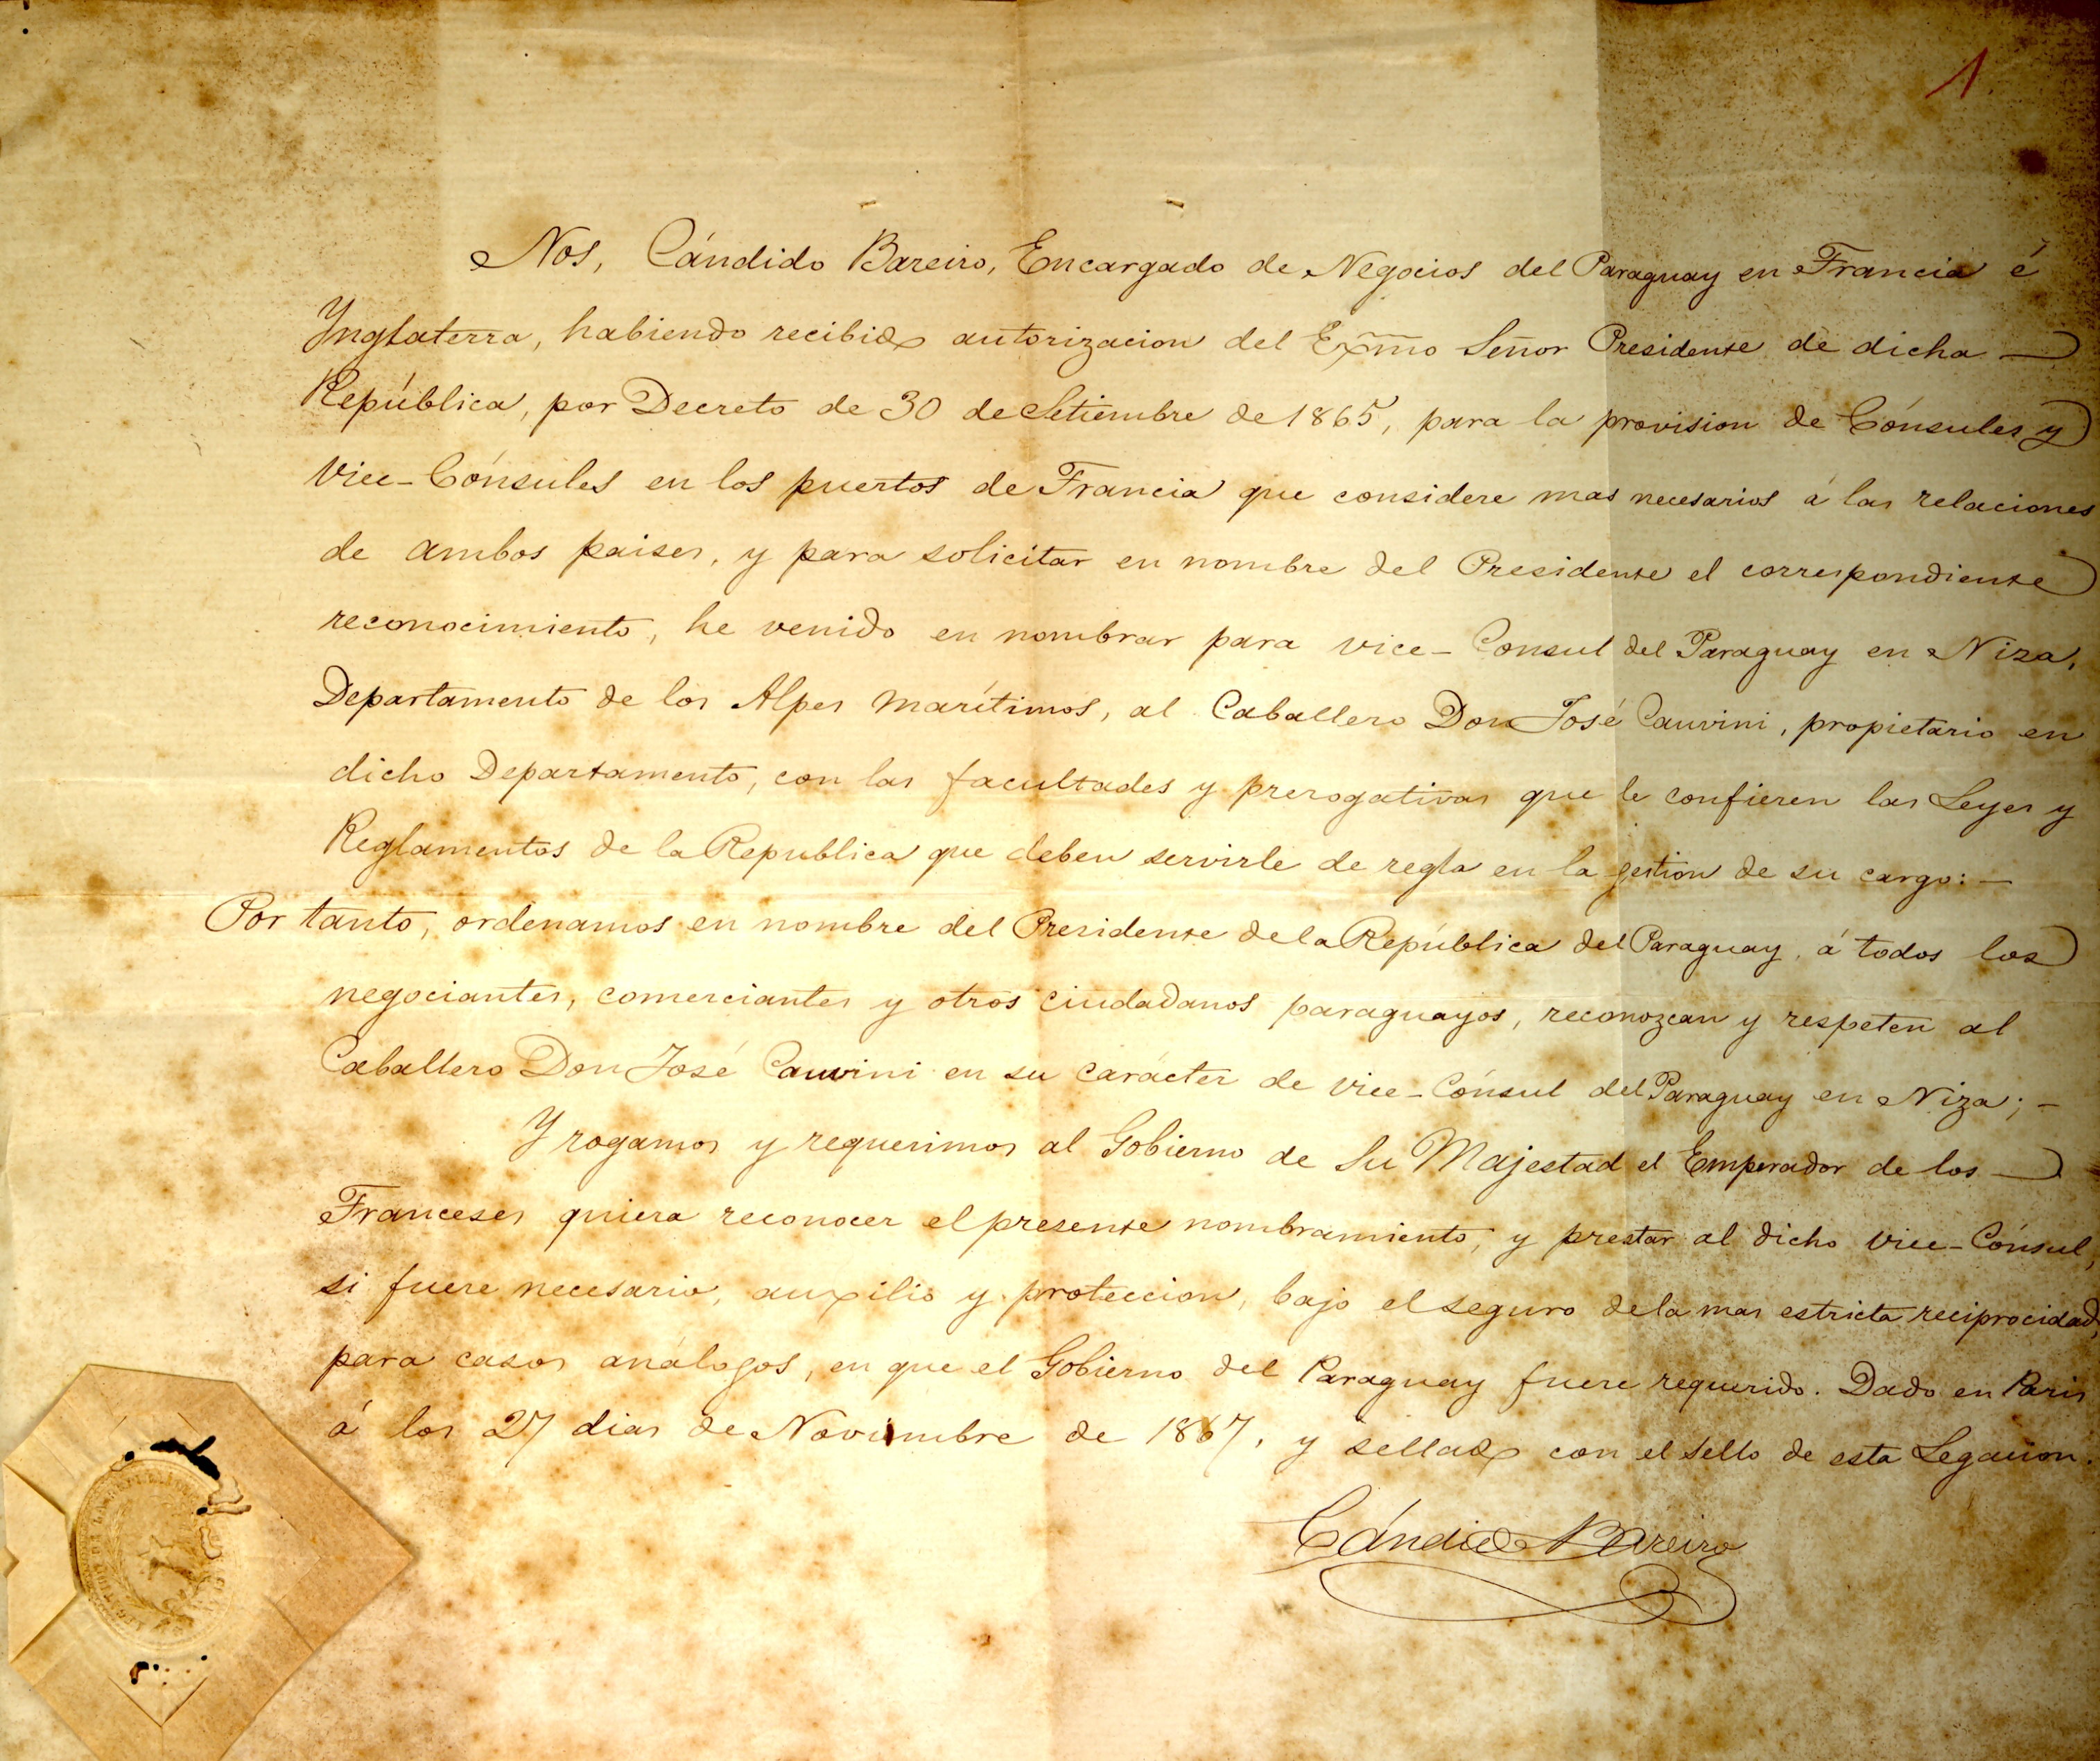 1
Nos, Cándido Bareiro, Encargado de Negocios del Paraguay en Francia é
Ynglaterra, habiendo recibido autorizacion del Exmo Señor Presidente de dicha —
República, por Decreto de 30 de Setiembre de 1865, para la provision de Cónsules y
Vice-Cónsules en los puertos de Francia que considere mas necesarios á las relaciones
de ambos paises, y para solicitar en nombre del Presidente el correspondiente
reconocimiento, he venido en nombrar para vice-Consul del Paraguay en Niza,
Departamento de los Alpes Marítimos, al Caballero Don José Cauvini, propietario en
dicho Departamento, con las facultades y prerogativas que le confieren las Leyes y
Reglamentos de la Republica que deben servirle de regla en la gestion de su cargo: —
Por tanto, ordenamos en nombre del Presidente de la República del Paraguay, á todos los
negociantes, comerciantes y otros ciudadanos paraguayos, reconozcan y respeten al
Caballero Don José Cauvini en su carácter de Vice-Cónsul del Paraguay en Niza; —
Y rogamos y requerimos al Gobierno de Su Majestad el Emperador de los —
Franceses quiera reconocer el presente nombramiento, y prestar al dicho Vice-Cónsul,
si fuere necesario, auxilio y proteccion, bajo el seguro de la mas estricta reciprocidad,
para casos análogos, en que el Gobierno del Paraguay fuere requerido. Dado en Paris
á los 27 dias de Noviembre de 1867, y sellado con el sello de esta Legacion.
Cándido Bareiro